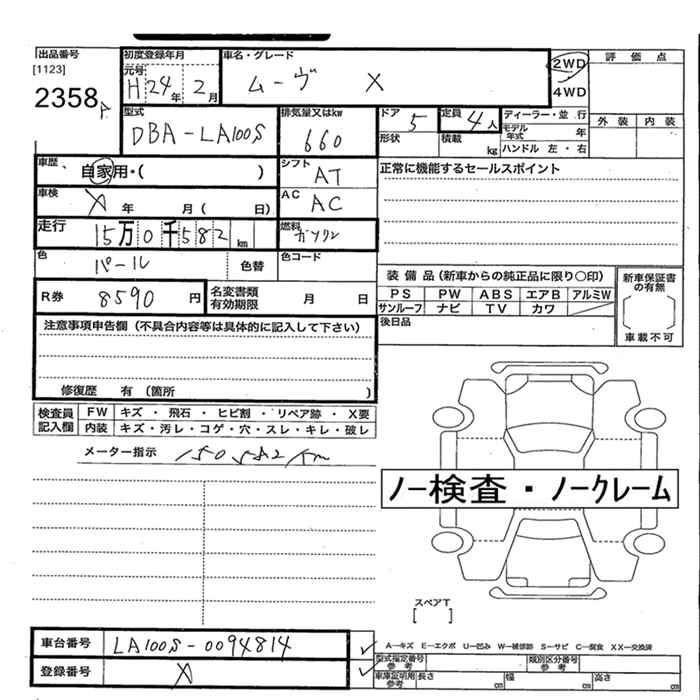 出品番号
[1123]
2358
初度登録年月
元号 H 24 年 2 月
車名・グレード
ムーヴ X
2WD
4WD
評価点
外装 内装
型式
DBA-LA100S
排気量又はkw
660
ドア 5
形状
定員 4 人
積載 kg
ディーラー・並 行
モデル年式 年
ハンドル 左・右
車歴 自家用・( )
シフト AT
正常に機能するセールスポイント
車検 X 年 月 ( 日)
AC AC
走行 15万0千582 km
燃料 ガソリン
色 パール
色替
色コード
R券 8590 円
名変書類有効期限 月 日
装備品(新車からの純正品に限り〇印)
PS PW ABS エアB アルミW
サンルーフ ナビ TV カワ
後日品
新車保証書の有無
車載不可
注意事項申告欄(不具合内容等は具体的に記入して下さい)
修復歴 有 (箇所 )
検査員記入欄
FW キズ ・ 飛石 ・ ヒビ割 ・ リペア跡 ・ X要
内装 キズ・汚レ・コゲ・穴・スレ・キレ・破レ
メーター指示 150582 km
ノー検査・ノークレーム
スペアT
[ ]
車台番号 LA100S-0094814
登録番号 X
A−キズ E−エクボ U−凹み W−補修跡 S−サビ C−腐食 XX−交換済
型式指定番号参考
類別区分番号参考
車庫証明用参考 長さ cm 幅 cm 高さ cm